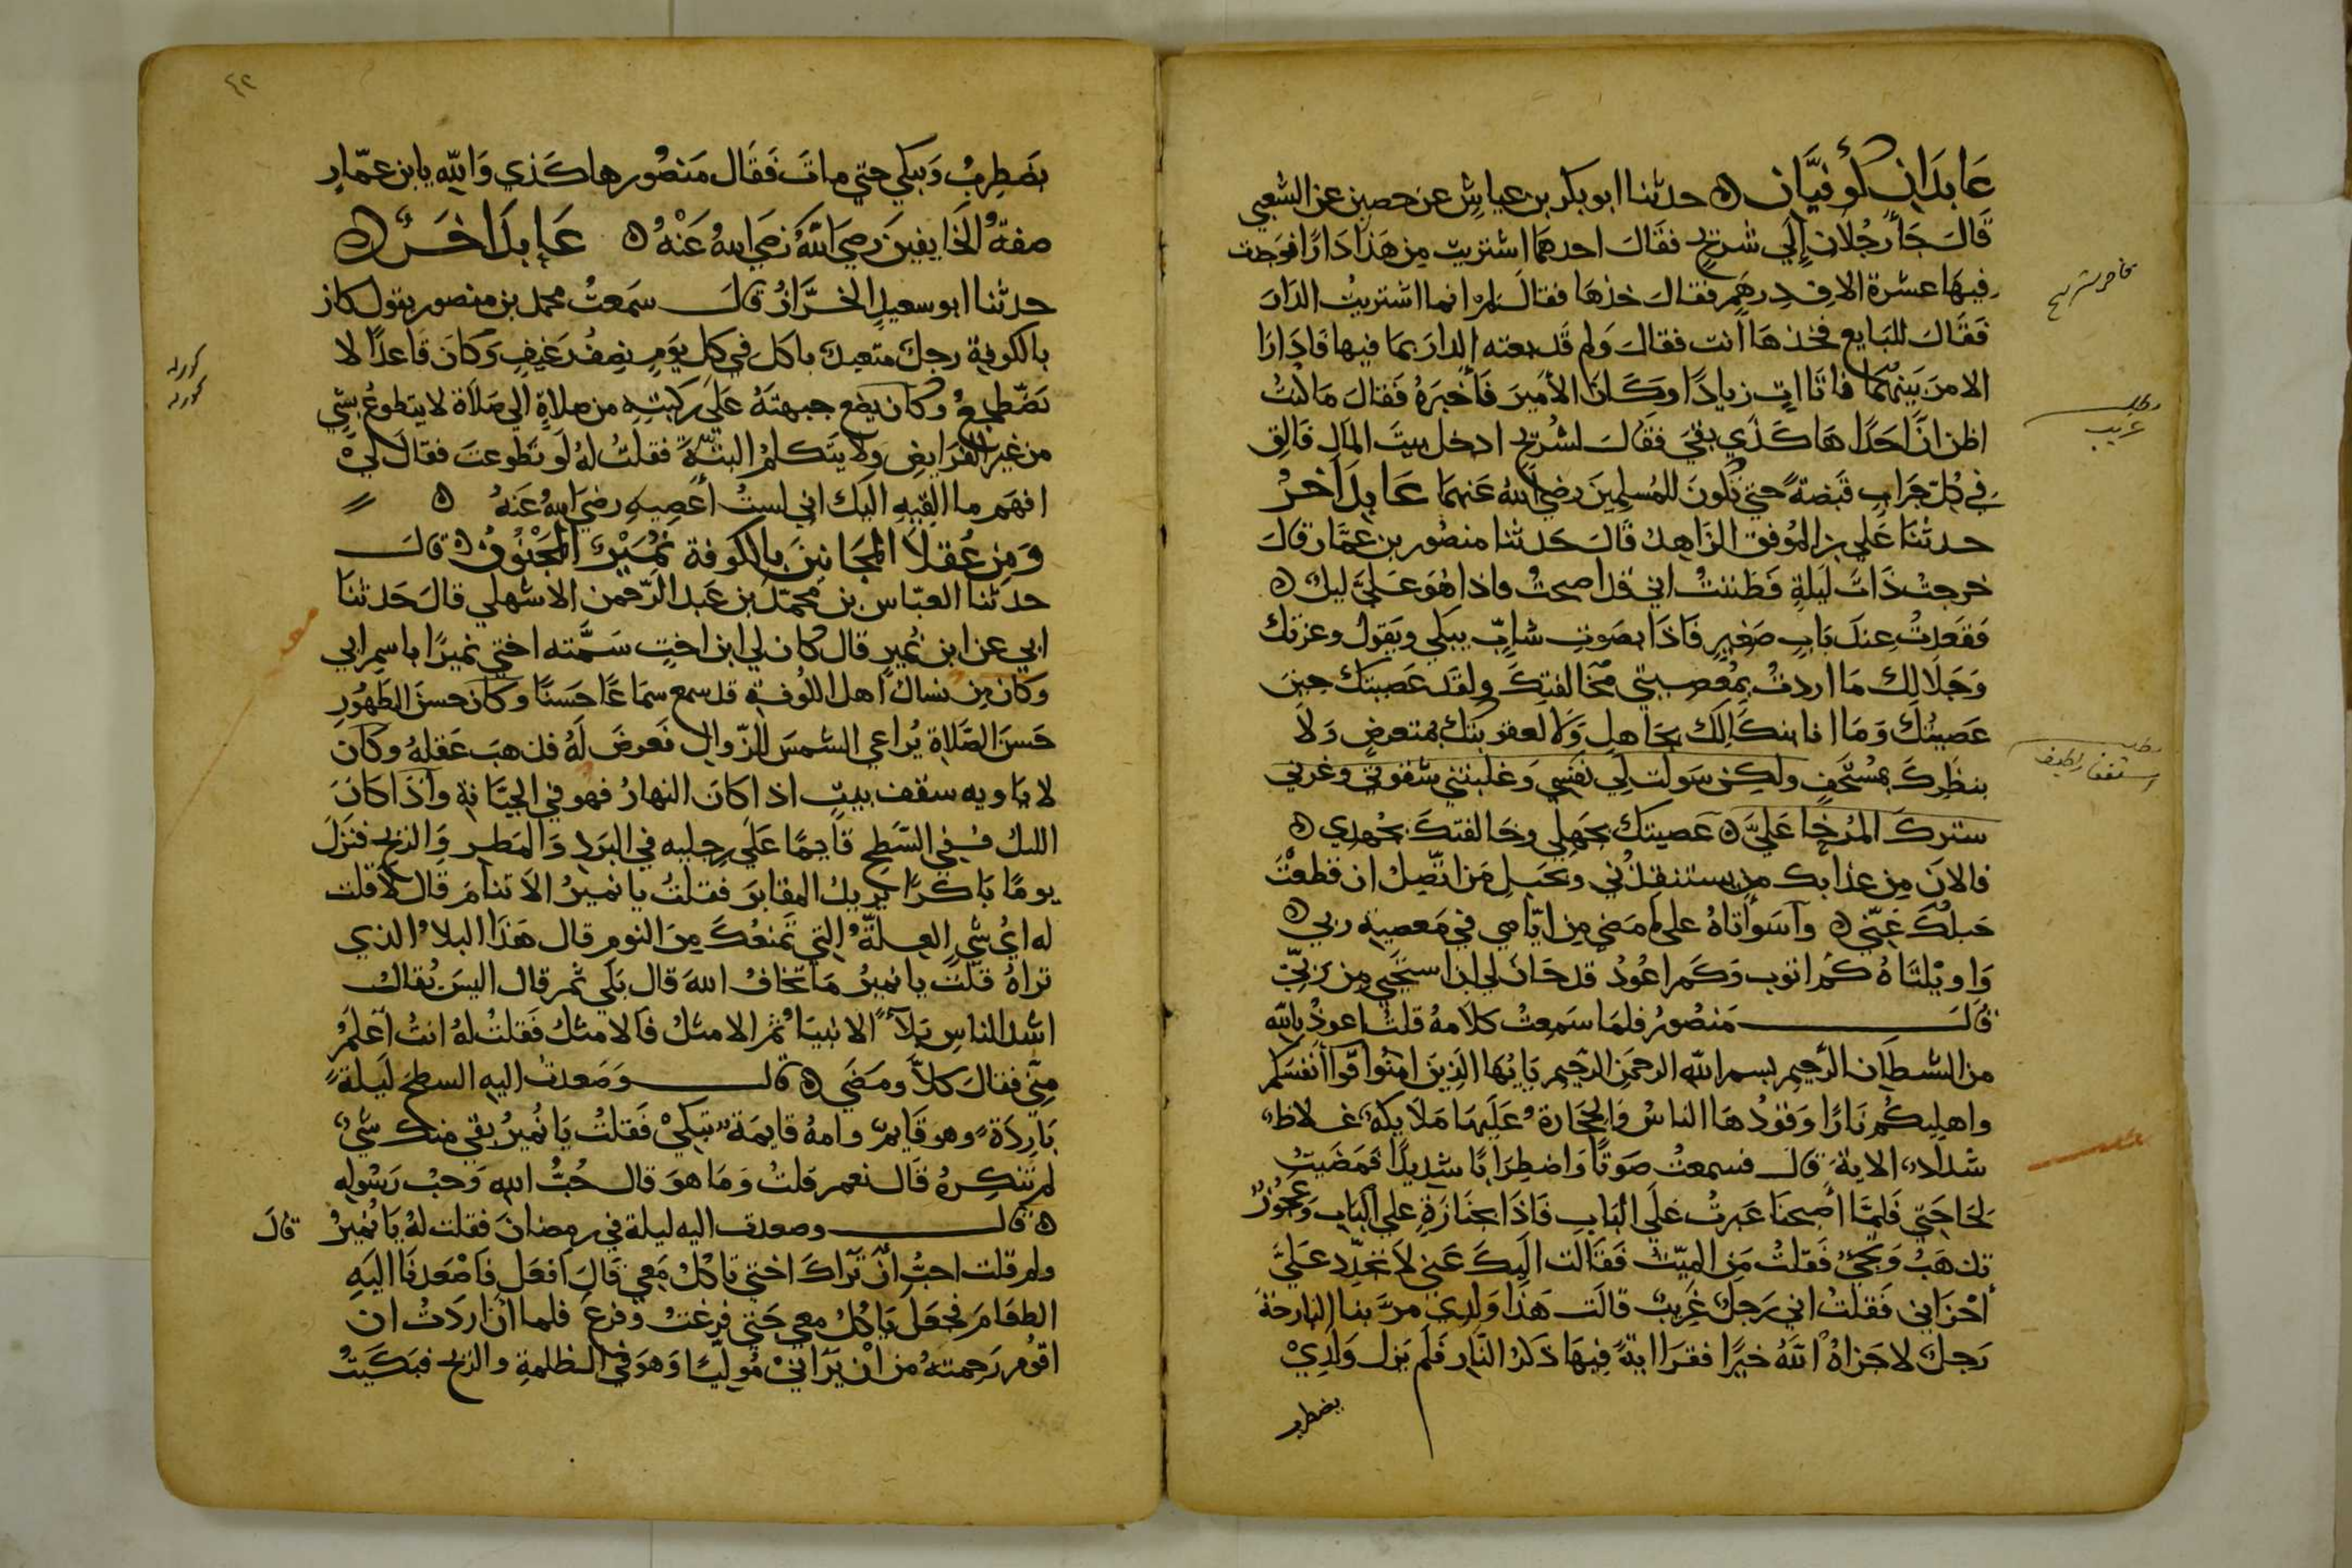 عَابدَان كُوفيَّان ۵ حدثنا ابو بكر بن عياش عن حصين عن الشعبي
قالَ جَأَ رجُلان إلي شريح فقالَ احدهما اشتريت من هَذا دَارًا فوَجدت
فيهَا عشرة الاف دِرهَم فقالَ خذهَا فقالَ لِمَ انما اشتريتُ الدَار
فَقَالَ للبَايع فخذهَا انت فقالَ ولِمَ قَد بعته الدارَ بمَا فيها فَادَارَا
الامرَ بَينهُمَا فاتَا اتٍ زيادًا وَكَانَ الأميرَ فَأخبَرَهُ فَقالَ مَا كُنتُ
اظن انَّ احَدًا هَاكَذي بقيَ فقَالَ لشُريح ادخل بيتَ المَالِ فَالقِ
في كُلّ جَرَابٍ قَبضةً حتي تكونَ للمُسلِمِينَ رضيَ اللهُ عَنهمَا عَابدٌ آخرُ
حدثنَا عَلي بن المُوفق الزَاهدُ قَالَ حَدثنا منصُور بن عمَّار قالَ
خرجتُ ذَاتَ لَيلةٍ فَظننتُ اني قد اصبحتُ واذا هُوَ عَلَيَّ ليلٌ ۵
فقعَدتُ عِندَ بَابٍ صَغِيرٍ فَاذَا بصَوتِ شابٍّ يبكي ويَقولُ وعزتك
وَجَلَالك مَا اردتُ بِمَعصِيتي مُخَالفتكَ ولقد عَصَيتك حِينَ
عَصَيتُكَ وَمَا انا بنكَالِكَ بجَاهلٍ وَلَا لعقوبتك بمتعرضٍ وَلَا
بنظركَ بمُستخفٍ ولكِن سَولَت لي نفسي وَغلبتني شقوتي وغرني
ستركَ المُرخَا عَليَّ ۵ عَصيتكَ بجَهلي وخَالفتكَ بجُهدي ۵
فالانَ مِن عذابك من يستنقذُني وبحَبلِ مَن اتَّصِلُ ان قطعْتَ
حَبلكَ عَنّي ۵ وآسَوأتاهُ علي ما مَضي مِن ايّامي في مَعصيةِ ربي ۵
وَاويْلتَاهُ كم اتوب وَكَم اعُودُ قد حَانَ لي ان استحيي مِن رَبيّ
قالَ مَنصُور فلمَا سَمِعتُ كلاَمهُ قلتُ اعوذُ بالله
من الشيطَان الرَّجيم بسم الله الرحمَن الرَّحيم يَايُهَا الَذِينَ امنُوا قُوا أَنفسَكم
واهلِيكُم نَارًا وَقُودُهَا الناسُ وَالحجَارةُ عَلَيهَا مَلَايكةٌ غِلاظٌ
شدَادٌ الاية قال فسمعتُ صَوتًا وَاضطِرَابًا شديدًا فمَضَيتُ
لحَاجَتي فَلمَّا اصبحنَا عَبرتُ عَلَي البَابِ فَاذَا بجنَازَةٍ علي البَاب وَعجُوزٌ
تذهَبُ وَتجيُ فَقلتُ مَن الميّتُ فَقَالت اليكَ عَني لا تجدّد عَليَّ
أحزَاني فَقلتُ اني رَجلٌ غَريبٌ قالَت هَذَا وَلدي مرَّ بنا البَارحَةَ
رَجلٌ لا جَزاهُ اللهُ خيرًا فقرَا ايةً فِيهَا ذكرُ النَّار فَلَم يَزل وَلَدِيْ
يضطرب
قاضي شريح
مطلب
غريب
مطلب
استغفار لطيف
٤٢
يَضطِربُ وَيبكي حتي ماتَ فَقَال مَنصُور هاكَذي وَالله يابن عمّارٍ
صفةُ الخايفِينَ رضيَ اللَّهُ رَضيَ اللهُ عَنْهُ ۵ عَابدٌ اخَرٌ ۵
حدثنا ابو سعيدٍ الخرَّازُ قالَ سَمعتُ محمد بن منصور يقول كان
بالكوفةِ رجلٌ متعبدٌ ياكل في كل يَومٍ نِصفُ رَغيفٍ وَكانَ قَاعدًا لا
يَضّطجعُ وكان يضع جبهتَهُ عَلَي ركبتهِ من صلاةٍ الي صَلاَة لا يتطوعُ بشيٍ
من غير الفرَايضِ ولا يتكلمُ البتَّةَ فقلتُ لهُ لَو تطوعتَ فقال ليَ
افهَم ما القِيهِ اليك اني لستُ أعصِيهِ رضيَ اللهُ عَنهُ ۵
وَمِن عُقلاَ المَجَانِينَ بالكوفة نُمَيْرٌ المَجْنُونُ ۵ قالَ
حدثنا العبّاس بن محمّد بن عَبد الرّحمن الاشهلي قالَ حَدثنَا
ابي عن ابن نُمير قال كان لي ابن اختٍ سَمَّته اختي نميرًا باسمِ ابي
وكانَ مِن نساك أهل الكوفةِ قد سمع سمَاعًا حَسَنًا وكانَ حسنَ الطهُورِ
حَسنَ الصَّلاةِ يُراعي الشمسَ للزّوال فَعرضَ لَهُ فذهبَ عَقلهُ وكانَ
لا يَاويه سقف بيتٍ اذا كانَ النهارُ فهو في الجبَّانةِ وأذا كانَ
الليلُ فُفي السّطح قايمًا عَلَي رِجليه في البَردِ وَالمَطرِ وَالريح فنزلَ
يومًا بَاكرًا يريدُ المقابرَ فقلتُ يا نميرُ الاَ تنامَ قَال لا قلت
له ايُّ شيٍ العِلَّةُ التي تَمنعُكَ مِنَ النومِ قال هَذَا البلاُ الذي
تراهُ قلت يا نميرُ مَا تخافُ اللهَ قال بَلَي ثم قال اليسَ يُقالُ
اشد الناسِ بَلاَءً الانبيَا ثمَّ الامثلُ فَالامثلُ فَقلتُ لَهُ انتَ أعلَمُ
مِنّي فقالَ كلاَّ ومَضَي ۵ قال وَصَعدتُ اليهِ السطحَ لَيلةً
بَاردَةً وهو قَايمٌ وامهُ قايمَةٌ تبكيْ فَقلتُ يَا نُميرُ بقي منك شَيٌ
لم تُنكِرهُ قَالَ نعم قلتُ وَمَا هوَ قال حُبُّ اللهِ وَحبُ رَسُولِهِ
۵ قال وصعدت اليه ليلة في رمضانَ فقلت لهُ يَا نُميرُ قالَ
ولم قلت احبُّ أنَّ تَرَاكَ اختي تاكُلُ مَعي قالَ افعَل فَاصْعَدنَا اليَهِ
الطعَامَ فجعَلَ يَاكُلُ معي حَتي فرغتُ وفرغَ فلما اَنْ ارَدتُ ان
اقوُم رَحِمتهُ مِن اَنْ يَرَانيْ مُوليًّا وَهوَ في الظلمةِ والريح فبكَيتُ